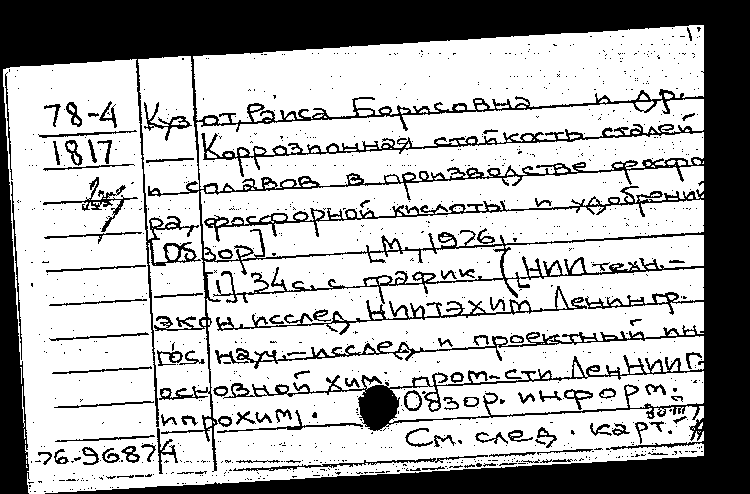 78-4
1817
Кузют, Раиса Борисовна и др.
Коррозионная стойкость сталей
и сплавов в производстве фосфо
ра, фосфорной кислоты и удобрений
[Обзор]. [М., 1976].
[1], 34 с. с график. ([НИИ техн.-
экон. исслед. НИИТЭХИМ. Ленингр.
гос. науч.-исслед. и проектный ин.
основной хим. пром-сти ЛенНИИГ
ипрохим].
Обзор. информ.
См. след. карт.
76-96874